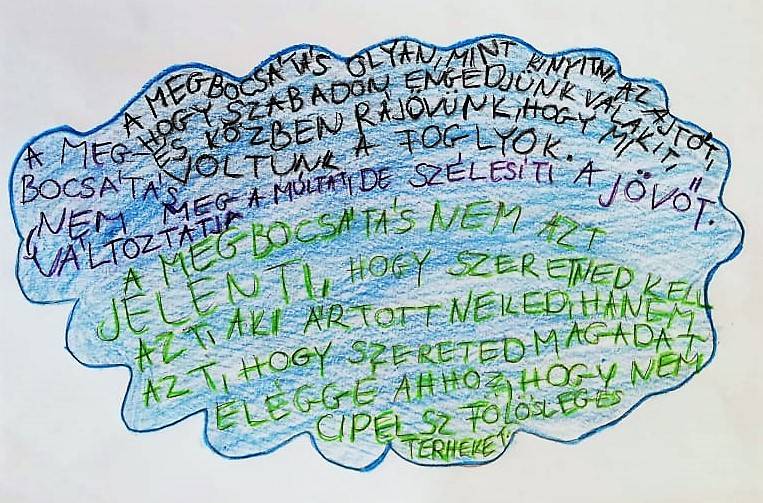 A MEGBOCSÁTÁS OLYAN, MINT KINYITNI AZ AJTÓT,
HOGY SZABADON ENGEDJÜNK VALAKIT,
ÉS KÖZBEN RÁJÖVÜNK, HOGY MI
VOLTUNK A FOGLYOK.
A MEG-
BOCSÁTÁS
NEM MEG A MÚLTAT, DE SZÉLESÍTI A JÖVŐT.
VÁLTOZTATJA
A MEGBOCSÁTÁS NEM AZT
JELENTI, HOGY SZERETNED KELL
AZT, AKI ÁRTOTT NEKED, HANEM
AZT, HOGY SZERETED MAGADAT
ELÉGGÉ AHHOZ, HOGY NEM
CIPELSZ FÖLÖSLEGES
TERHEKET.